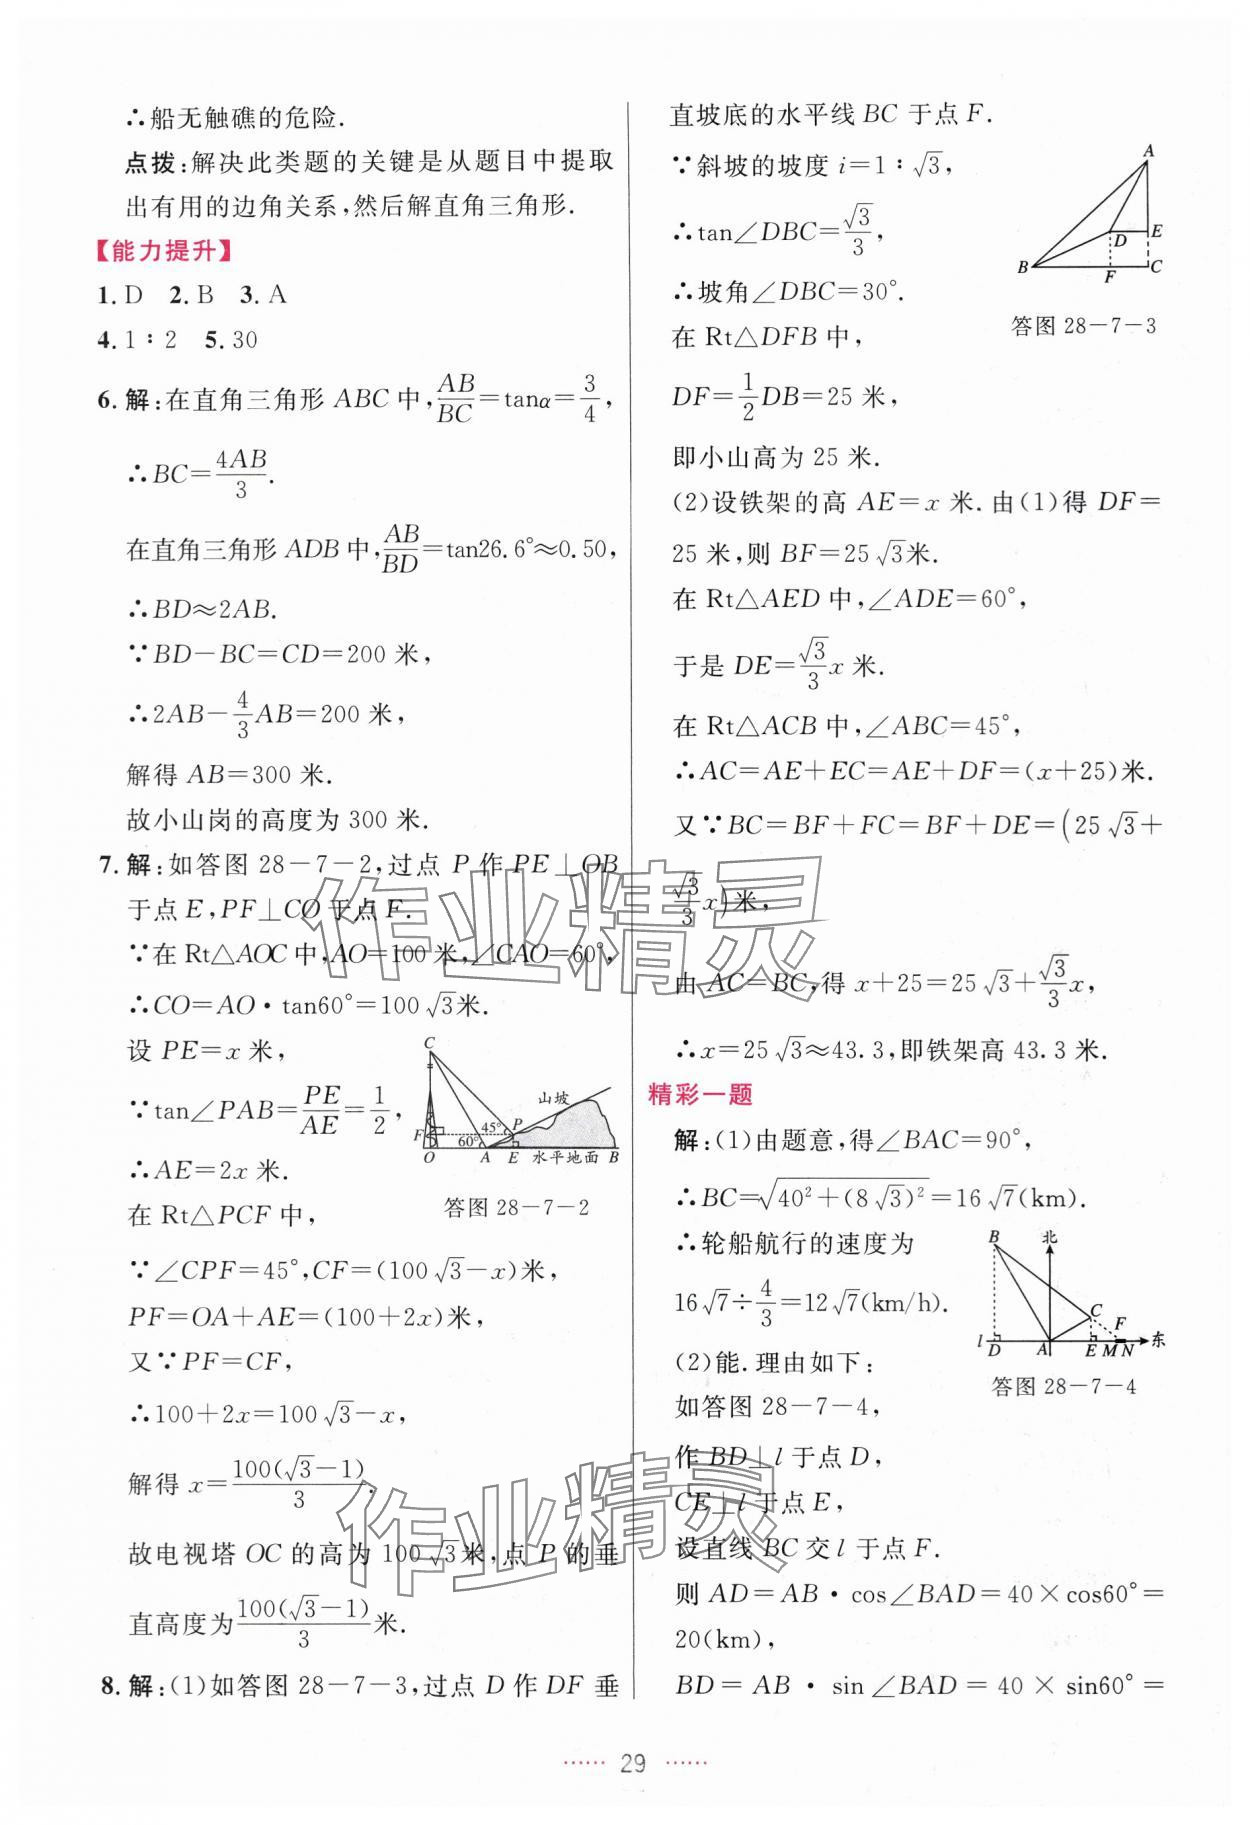 ∴船无触礁的危险.
点拨:解决此类题的关键是从题目中提取
出有用的边角关系,然后解直角三角形.
【能力提升】
1. D  2. B  3. A
4. 1∶2  5. 30
6. 解:在直角三角形 ABC 中,AB/BC=tanα=3/4,
∴BC=4AB/3.
在直角三角形 ADB 中,AB/BD=tan26.6°≈0.50,
∴BD≈2AB.
∵BD-BC=CD=200 米,
∴2AB-4/3AB=200 米,
解得 AB=300 米.
故小山岗的高度为 300 米.
7. 解:如答图 28-7-2,过点 P 作 PE⊥OB
于点 E,PF⊥CO 于点 F.
∵在 Rt△AOC 中,AO=100 米,∠CAO=60°,
∴CO=AO·tan60°=100√3米.
设 PE=x 米,
∵tan∠PAB=PE/AE=1/2,
∴AE=2x 米.
在 Rt△PCF 中,
C
山坡
F
45°
P
60°
O A E 水平地面 B
答图 28-7-2
∵∠CPF=45°,CF=(100√3-x)米,
PF=OA+AE=(100+2x)米,
又∵PF=CF,
∴100+2x=100√3-x,
解得 x=100(√3-1)/3.
故电视塔 OC 的高为 100√3米,点 P 的垂
直高度为100(√3-1)/3米.
8. 解:(1)如答图 28-7-3,过点 D 作 DF 垂
直坡底的水平线 BC 于点 F.
∵斜坡的坡度 i=1∶√3,
∴tan∠DBC=√3/3,
∴坡角∠DBC=30°.
在 Rt△DFB 中,
A
D E
B F C
答图 28-7-3
DF=1/2DB=25 米,
即小山高为 25 米.
(2)设铁架的高 AE=x 米.由(1)得 DF=
25 米,则 BF=25√3米.
在 Rt△AED 中,∠ADE=60°,
于是 DE=√3/3x 米.
在 Rt△ACB 中,∠ABC=45°,
∴AC=AE+EC=AE+DF=(x+25)米.
又∵BC=BF+FC=BF+DE=(25√3+
√3/3x)米,
由 AC=BC,得 x+25=25√3+√3/3x,
∴x=25√3≈43.3,即铁架高 43.3 米.
精彩一题
解:(1)由题意,得∠BAC=90°,
∴BC=√(40²+(8√3)²)=16√7(km).
∴轮船航行的速度为
16√7÷4/3=12√7(km/h).
(2)能.理由如下:
如答图 28-7-4,
B 北
C F
l D A E M N 东
答图 28-7-4
作 BD⊥l 于点 D,
CE⊥l 于点 E,
设直线 BC 交 l 于点 F.
则 AD=AB·cos∠BAD=40×cos60°=
20(km),
BD=AB·sin∠BAD=40×sin60°=
作业精灵
作业精灵
…… 29 ……